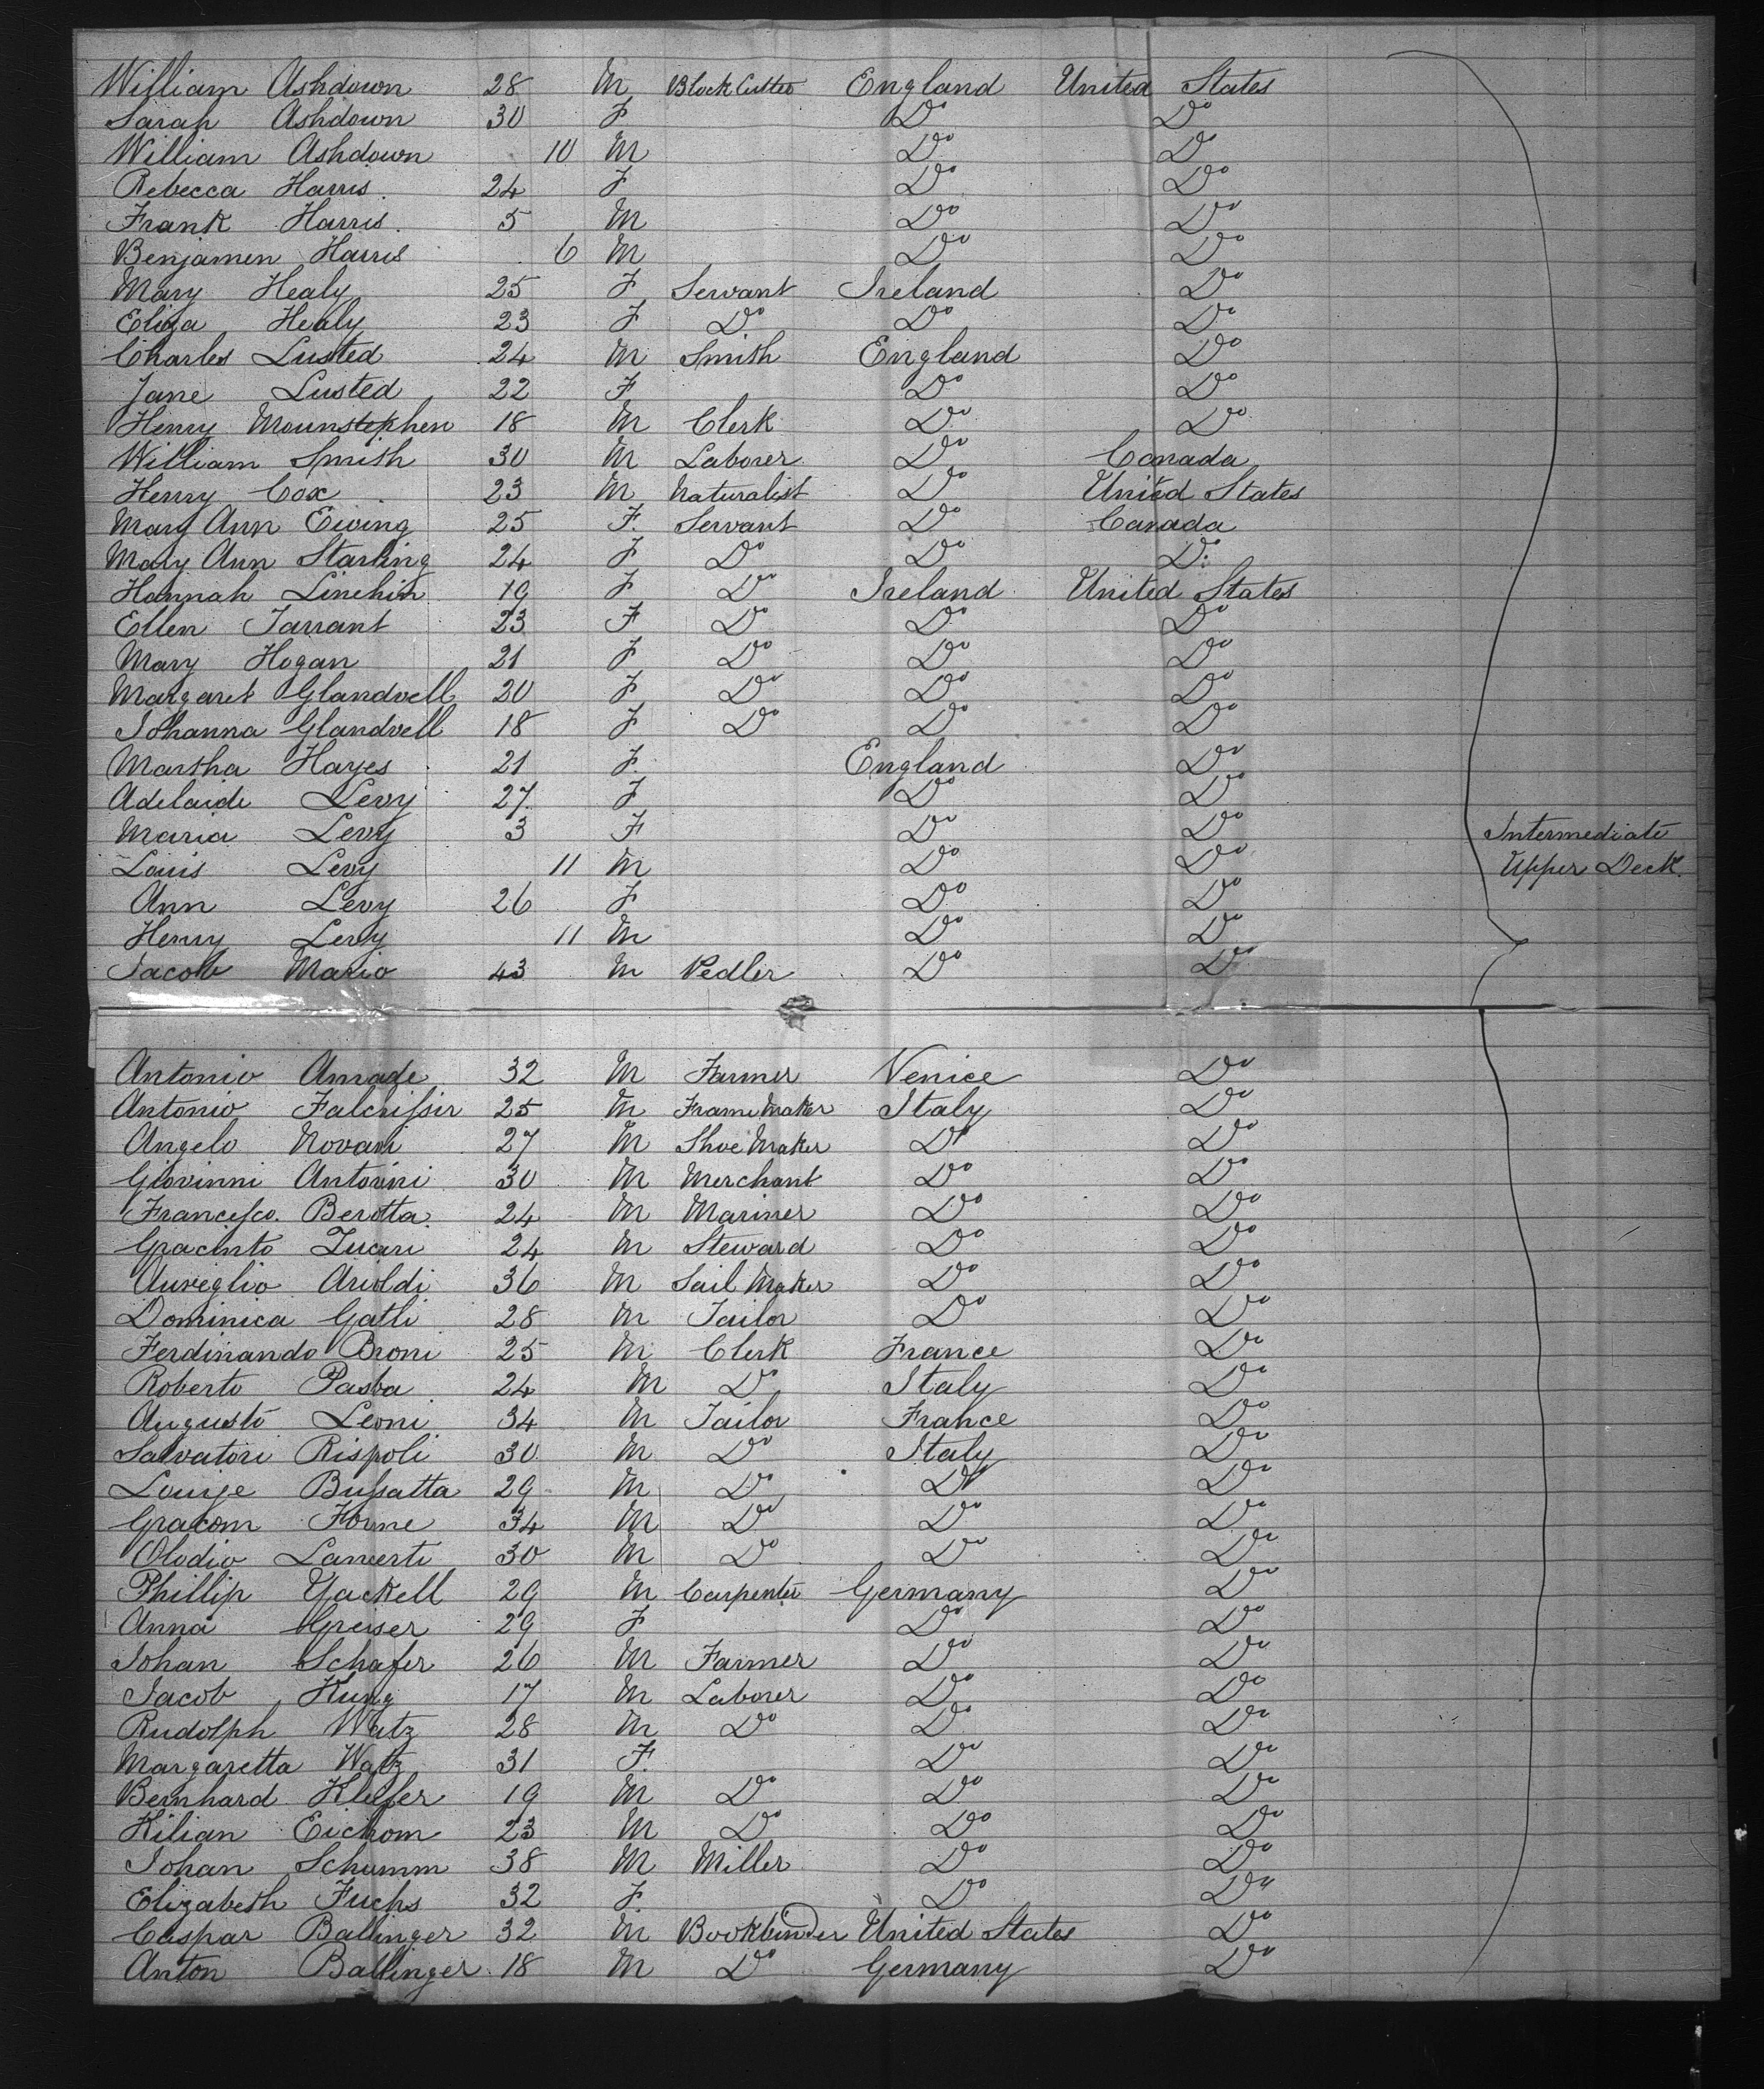 William Ashdown 28 M Block Cutter England United States
Sarah Ashdown 30 F Do Do
William Ashdown 10 M Do Do
Rebecca Harris 24 F Do Do
Frank Harris 5 M Do Do
Benjamen Harris 6 M Do Do
Mary Healy 25 F Servant Ireland Do
Eliza Healy 23 F Do Do Do
Charles Lusted 24 M Smith England Do
Jane Lusted 22 F Do Do
Henry Mounstephen 18 M Clerk Do Do
William Smith 30 M Laborer Do Canada
Henry Cox 23 M Naturalist Do United States
Mary Ann Ewing 25 F Servant Do Canada
Mary Ann Starling 24 F Do Do Do
Hannah Linehin 19 F Do Ireland United States
Ellen Tarrant 23 F Do Do Do
Mary Hogan 21 F Do Do Do
Margaret Glandvell 20 F Do Do Do
Johanna Glandvell 18 F Do Do Do
Martha Hayes 21 F England Do
Adelaide Levy 27 F Do Do
Maria Levy 3 F Do Do Intermediate
Louis Levy 11 M Do Do Upper Deck
Ann Levy 26 F Do Do
Henry Levy 11 M Do Do
Jacob Mario 43 M Pedler Do Do
Antonio Amade 32 M Farmer Venice Do
Antonio 25 M Frame Maker Italy Do
Angelo Novari 27 M Shoe Maker Do Do
Giovinni Antonini 30 M Merchant Do Do
Francesco Berotta 24 M Mariner Do Do
Gracinto 24 M Steward Do Do
Auveglio Aroldi 36 M Sail Maker Do Do
Dominica Gatli 28 M Tailor Do Do
Ferdinando Broni 25 M Clerk France Do
Roberto Pasta 24 M Do Italy Do
Augusto Leoni 34 M Tailor France Do
Salvatori Rispoli 30 M Do Italy Do
Louije Bussatta 29 M Do Do Do
Gracom Forne 34 M Do Do Do
Olodio 30 M Do Do Do
Phillip Yackell 29 M Carpenter Germany Do
Anna Greiser 29 F Do Do
Johan Schafer 26 M Farmer Do Do
Jacob Kung 17 M Laborer Do Do
Rudolph Watz 28 M Do Do Do
Margaretta Watz 31 F Do Do
Bernhard Kleefer 19 M Do Do Do
Kilian Eichom 23 M Do Do Do
Johan Schumm 38 M Miller Do Do
Elizabeth Fuchs 32 F Do Do
Caspar Ballinger 32 M Bookbinder United States Do
Anton Ballinger 18 M Do Germany Do